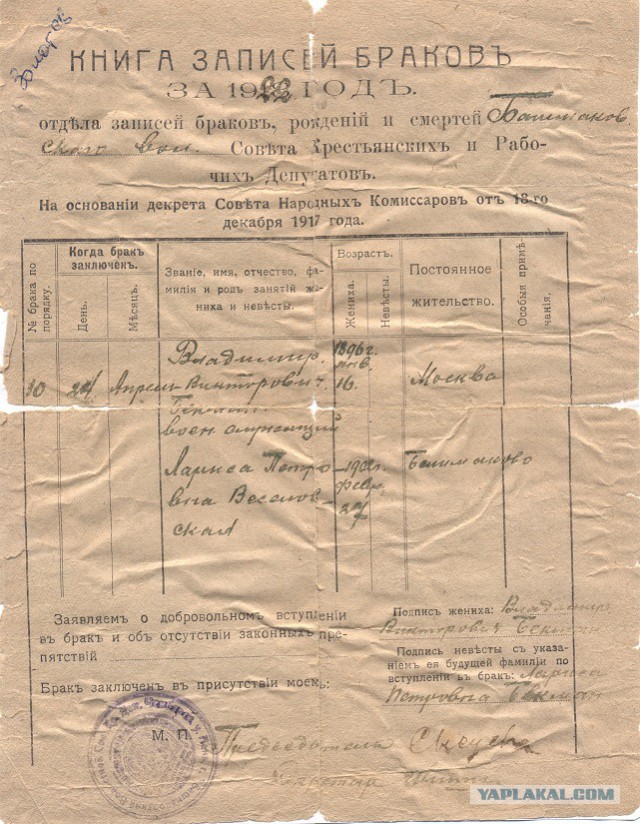 КНИГА ЗАПИСЕЙ БРАКОВЪ
ЗА 1922 ГОДЪ.
отдѣла записей браковъ, рожденій и смертей Башмаков
скаго вол. Совѣта Крестьянскихъ и Рабо-
чихъ Депутатовъ.
На основаніи декрета Совѣта Народныхъ Комиссаровъ отъ 18-го
декабря 1917 года.
№ брака по порядку.
Когда бракъ заключенъ.
День.
Мѣсяцъ.
Званіе, имя, отчество, фа-
милія и родъ занятій же-
ниха и невѣсты.
Возрастъ.
Жениха.
Невѣсты.
Постоянное
жительство.
Особыя примѣ-
чанія.
Владимир
1896 г.
янв.
30 24 Апрель Викторович 16. Москва
Бекман
военнослужащий
Лариса Петро
вна Веселов-
ская
1902 г.
февр.
27
Башмаково
Заявляемъ о добровольномъ вступленіи
въ бракъ и объ отсутствіи законныхъ пре-
пятствій
Бракъ заключенъ въ присутствіи моемъ:
М. П.
Подпись жениха: Владимир
Викторович Бекман
Подпись невѣсты съ указа-
ніемъ ея будущей фамиліи по
вступленіи въ бракъ: Лариса
Петровна Бекман
Председатель
Секретарь
YAPLAKAL.COM